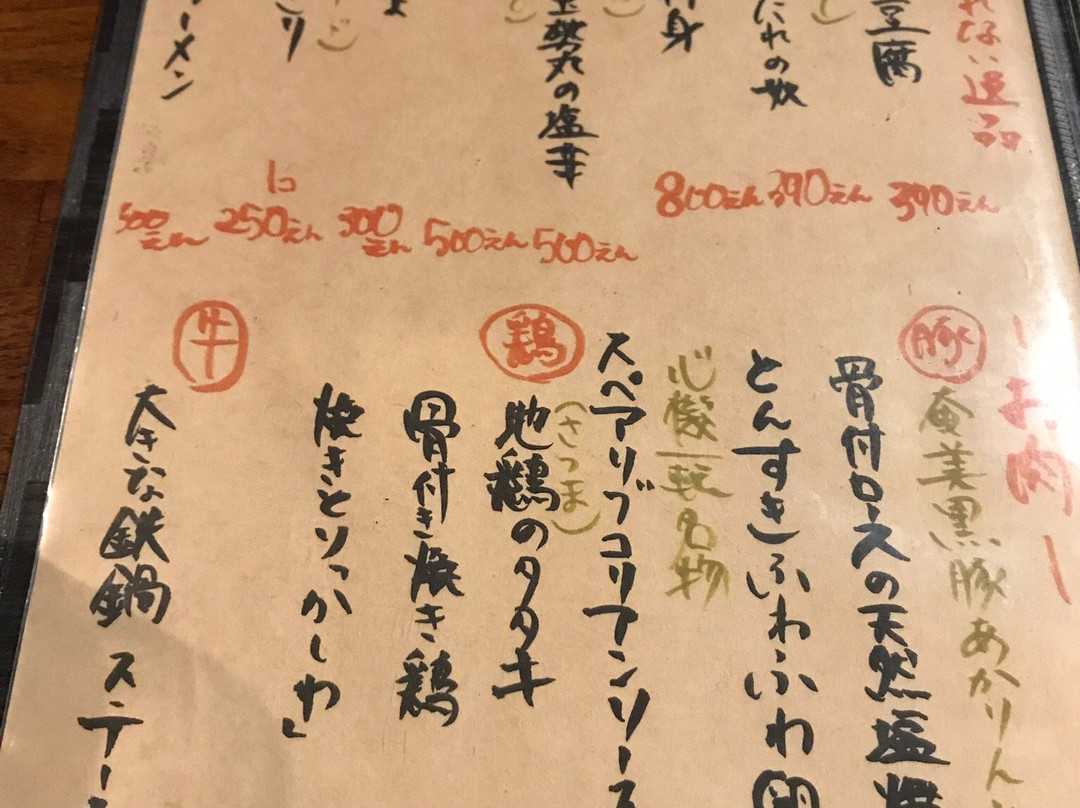 れない逸品
豆腐
390えん
にれの奴
390えん
身
800えん
の塩辛
500えん
500えん
300えん
り
1コ
250えん
ーメン
500えん
お肉ー
豚
奄美黒豚あかりん
骨付ロースの天然塩焼
とんすき ふわふわ卵
心機一転名物
スペアリブコリアンソース
鶏
(さつま)
地鶏のタタキ
骨付き焼き鶏
焼きとり「かしわ」
牛
大きな鉄鍋ステー